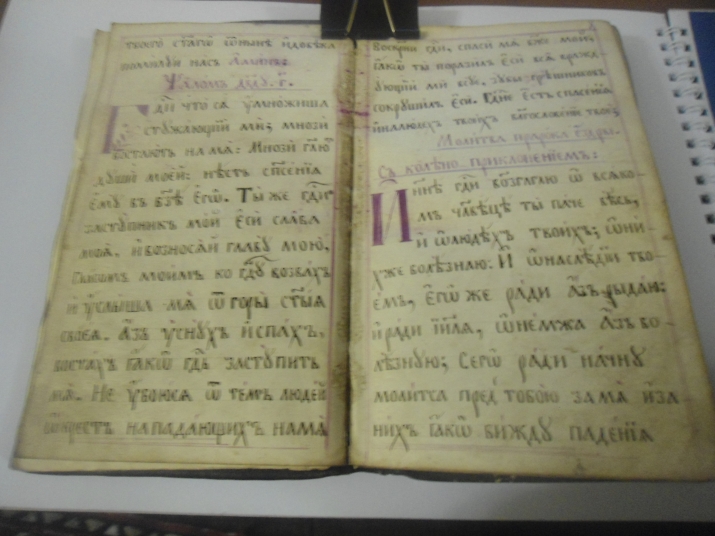 твоегѡ ст҃агѡ
помилуй насъ Аминь:
Ѱаломъ дв҃ду. г҃.
Гд҃и что сѧ ᲂумножиша
стужающїи ми; мнози
востаютъ на мѧ: Мнози гл҃ютъ
души моей: нѣсть спасенїѧ
емꙋ въ бз҃ѣ егѡ. Ты же гд҃и
заступникъ мой еси слава
моѧ, и возносѧй главу мою,
Гласомъ моимъ ко гд҃у воззвахъ
и ᲂуслыша мѧ ѿ горы ст҃ыѧ
своеѧ. Азъ ᲂуснухъ и спахъ,
востахъ ꙗкѡ гд҃ь заступитъ
мѧ. Не ᲂубоюсѧ ѿ темъ людей
ѡкрестъ нападающихъ на мѧ
Воскр҃ни гд҃и, спаси мѧ бж҃е мой;
ꙗкѡ ты поразилъ еси всѧ вражд-
ующїи ми всуе. Зубы грѣшниковъ
сокрушилъ еси. Гд҃не есть спасенїе,
и на людехъ твоихъ благословенїе твое;
Молитва пророка ездры.
Съ колѣно приклоненїемъ:
И нн҃ѣ гд҃и возглаголю ѿ всѧко-
мъ члв҃ецѣ ты паче вѣсь,
и ѿ людехъ твоихъ; ѡ ни-
хже болѣзную: И ѡ наслѣдїи тво-
емъ, егѡ же ради Азъ рыдаю:
и ради ї҃илѧ, ѡ немже Азъ бо-
лѣзную; Сегѡ ради начну
молитсѧ предъ тобою за мѧ и за
нихъ ꙗкѡ вижду паденїѧ